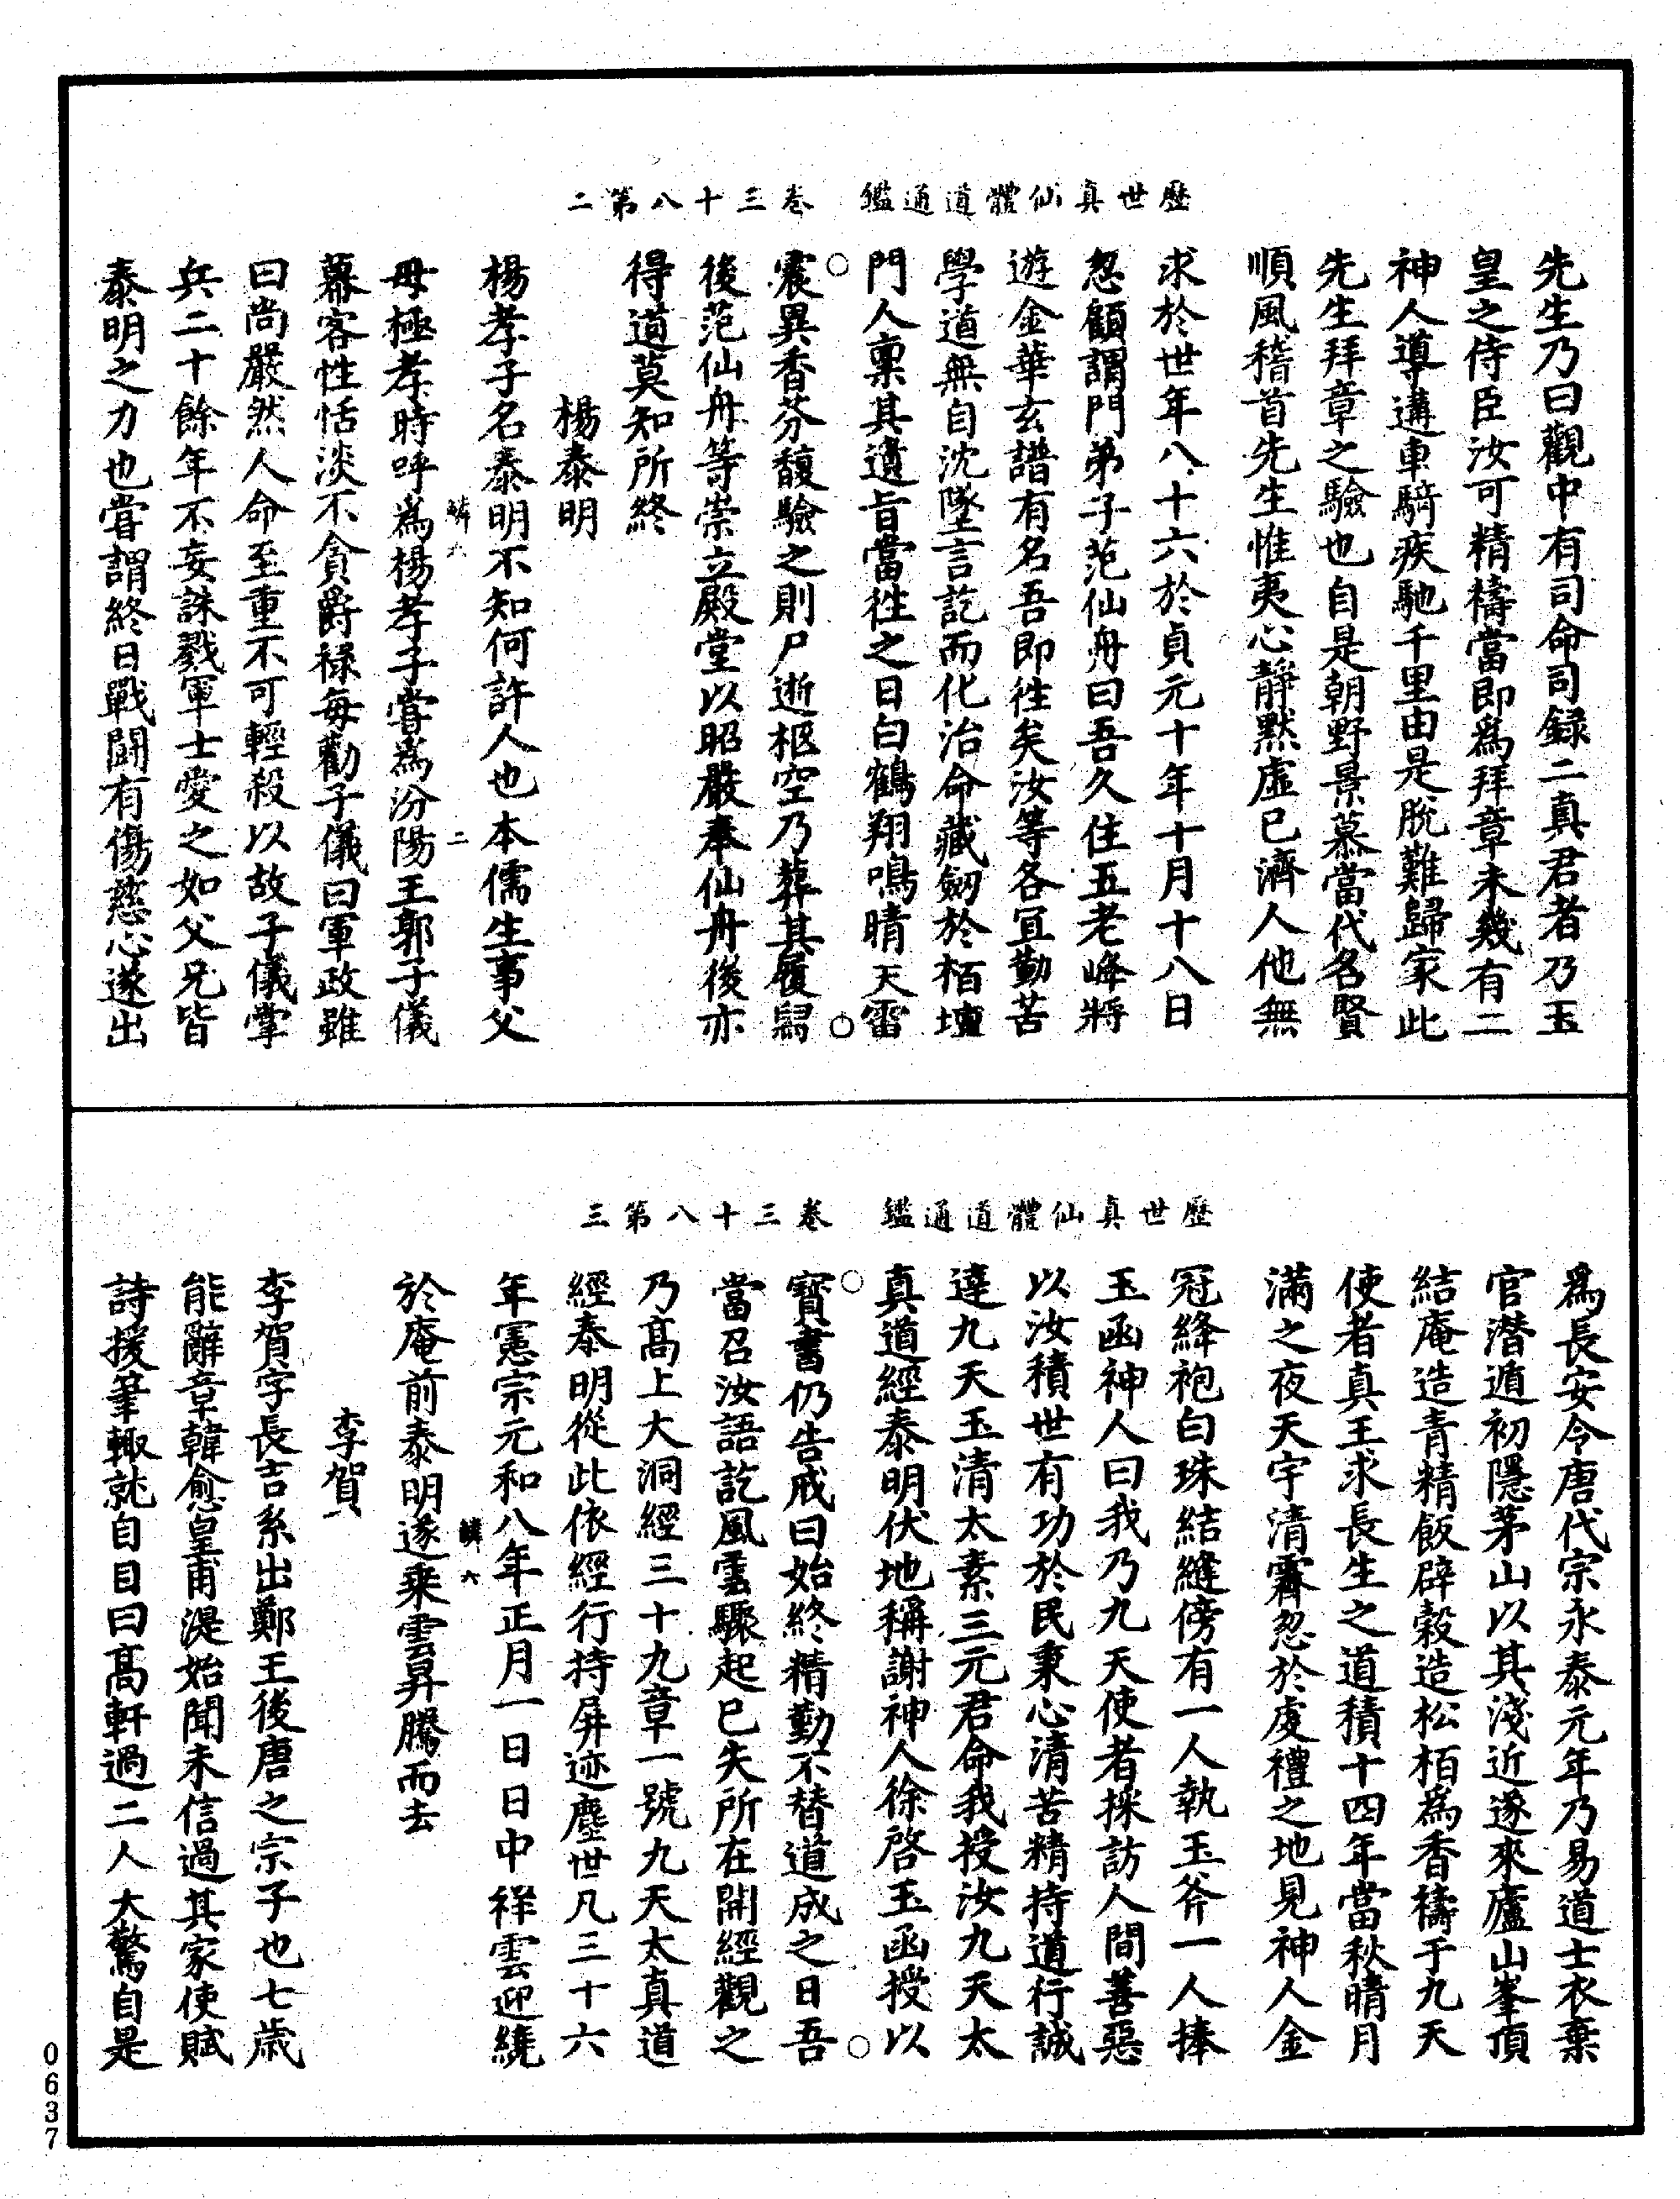 歷世真仙體道通鑑　卷三十八第二
先生乃曰觀中有司命司録二真君者乃玉
皇之侍臣汝可精禱當即爲拜章未幾有二
神人導遘車騎疾馳千里由是脫難歸家此
先生拜章之驗也自是朝野景慕當代名賢
順風稽首先生惟夷心靜默虛已濟人他無
求於世年八十六於貞元十年十月十八日
忽顧謂門弟子范仙舟曰吾久住五老峰將
遊金華玄譜有名吾即徃矣汝等各冝勤苦
學道無自沈墜言訖而化治命藏劒於栢壇
門人稟其遺旨當徃之日白鶴翔鳴晴天雷
震異香芬馥驗之則尸逝柩空乃葬其履舄
後范仙舟等崇立殿堂以昭嚴奉仙舟後亦
得道莫知所終
楊泰明
楊孝子名泰明不知何許人也本儒生事父
鱗六　二
母極孝時呼爲楊孝子嘗爲汾陽王郭子儀
幕客性恬淡不貪爵祿每勸子儀曰軍政雖
曰尚嚴然人命至重不可輕殺以故子儀掌
兵二十餘年不妄誅戮軍士愛之如父兄皆
泰明之力也嘗謂終日戰鬪有傷慈心遂出
歷世真仙體道通鑑　卷三十八第三
爲長安令唐代宗永泰元年乃易道士衣棄
官潜遁初隱茅山以其淺近遂來廬山峯頂
結庵造青精飯辟穀造松栢為香禱于九天
使者真王求長生之道積十四年當秋晴月
滿之夜天宇清霽忽於虔禮之地見神人金
冠絳袍白珠結縫傍有一人執玉斧一人捧
玉函神人曰我乃九天使者採訪人間善惡
以汝積世有功於民秉心清苦精持道行誠
達九天玉清太素三元君命我授汝九天太
真道經泰明伏地稱謝神人徐啓玉函授以
寳書仍告戒曰始終精勤不替道成之日吾
當召汝語訖風雲驟起已失所在開經觀之
乃髙上大洞經三十九章一號九天太真道
經泰明從此依經行持屏迹塵世凡三十六
年憲宗元和八年正月一日日中祥雲迎繞
鱗六
於庵前泰明遂乘雲昇騰而去
李賀
李賀字長吉系出鄭王後唐之宗子也七歳
能辭章韓愈皇甫湜始聞未信過其家使賦
詩援筆輙就自目曰髙軒過二人大驚自是
0637